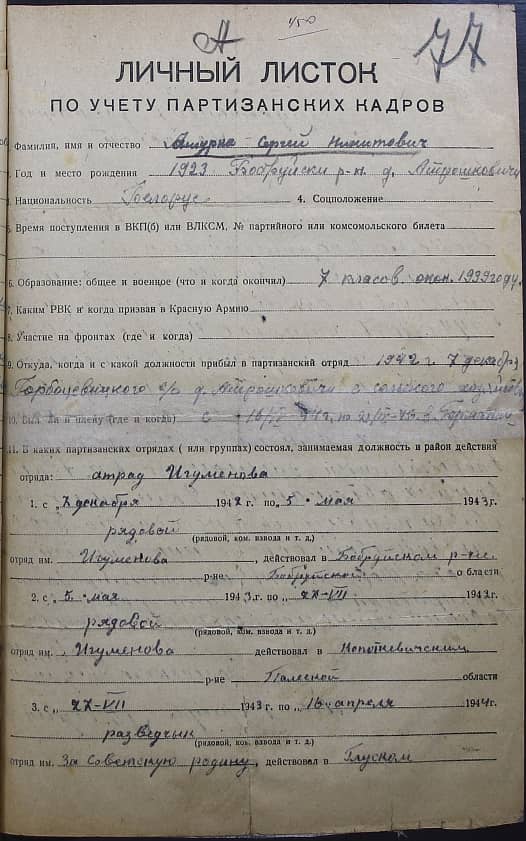 450
77
ЛИЧНЫЙ ЛИСТОК
ПО УЧЕТУ ПАРТИЗАНСКИХ КАДРОВ
Фамилия, имя и отчество Сергей Никитович
Год и место рождения 1923 Бобруйски р-н. д. Атрошковичи
3. Национальность Белорус 4. Соцположение
5. Время поступления в ВКП(б) или ВЛКСМ, № партийного или комсомольского билета
6. Образование: общее и военное (что и когда окончил) 7 класов. окон. 1939 году.
7. Каким РВК и когда призван в Красную Армию
8. Участие на фронтах (где и когда)
9. Откуда, когда и с какой должности прибыл в партизанский отряд 1942 г 7 декабря
Горболевицкого с/с д. Атрошковичи с селского
10. Был ли в плену (где и когда) с
11. В каких партизанских отрядах ( или группах) состоял, занимаемая должность и район действия
отряда: атрад Игуменова
1. с „7 декабря 1942 г. по „5 • мая 1943 г.
рядовой
(рядовой, ком. взвода и т. д.)
отряд им. Игуменова, действовал в Бобруйском р-не
р-не Бобруйской области
2. с „5 • мая 1943 г. по „ XX-VII 1943 г.
рядовой
(рядовой, ком. взвода и т. д.)
отряд им. Игуменова действовал в
р-не Палеской области
3. с „ XX-VII 1943 г. по „ 16 апреля 1944 г.
разведчык
(рядовой, ком. взвода и т. д.)
отряд им. За Советскую родину, действовал в Глуском